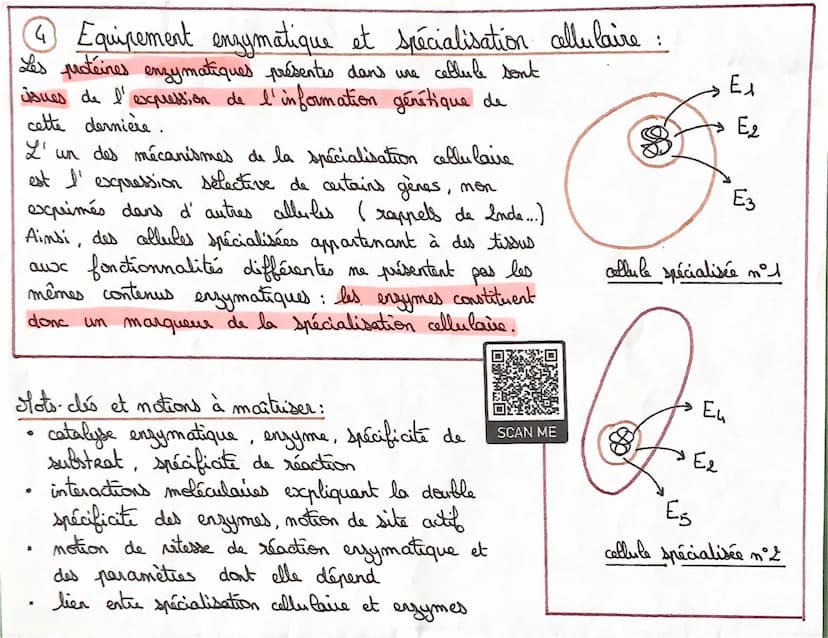 4 Equipement enzymatique et spécialisation cellulaire :
Les protéines enzymatiques présentes dans une cellule sont
issues de l'expression de l'information génétique de
cette dernière.
L'un des mécanismes de la spécialisation cellulaire
est l'expression sélective de certains gènes, non
exprimés dans d'autres cellules (rappels de 2nde...)
Ainsi, des cellules spécialisées appartenant à des tissus
aux fonctionnalités différentes ne présentent pas les
mêmes contenus enzymatiques : les enzymes constituent
donc un marqueur de la spécialisation cellulaire.
E1
E2
E3
cellule spécialisée n°1
SCAN ME
E4
E2
E5
cellule spécialisée n°2
Mots-clés et notions à maîtriser :
• catalyse enzymatique, enzyme, spécificité de
substrat, spécificité de réaction
• interactions moléculaires expliquant la double
spécificité des enzymes, notion de site actif
• notion de vitesse de réaction enzymatique et
des paramètres dont elle dépend
• lien entre spécialisation cellulaire et enzymes